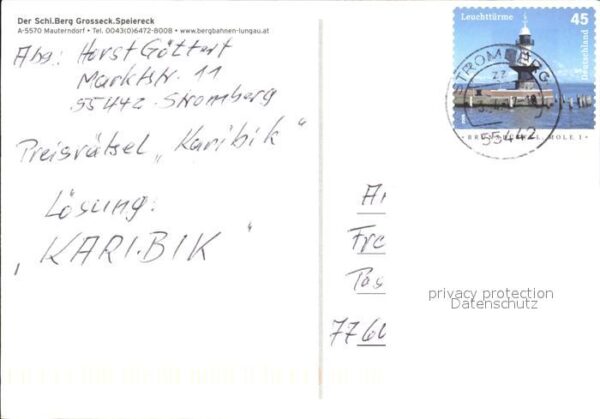 Der Schi.Berg Grosseck.Speiereck
A-5570 Mauterndorf • Tel. 0043(0)6472-8008 • www.bergbahnen-lungau.at
Abs: Horst Göttert
Marktstr. 11
55442 Stromberg
Preisrätsel „Karibik"
Lösung:
„KARIBIK"
Leuchttürme 45
Deutschland
STROMBERG
55442
MOLE 1
An
Fre
Pos
776
privacy protection
Datenschutz